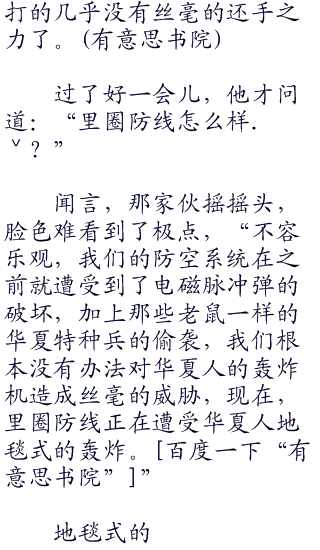 打的几乎没有丝毫的还手之
力了。(有意思书院)
过了好一会儿，他才问
道：“里圈防线怎么样.
ˇ？”
闻言，那家伙摇摇头，
脸色难看到了极点，“不容
乐观，我们的防空系统在之
前就遭受到了电磁脉冲弹的
破坏，加上那些老鼠一样的
华夏特种兵的偷袭，我们根
本没有办法对华夏人的轰炸
机造成丝毫的威胁，现在，
里圈防线正在遭受华夏人地
毯式的轰炸。[百度一下“有
意思书院”]”
地毯式的